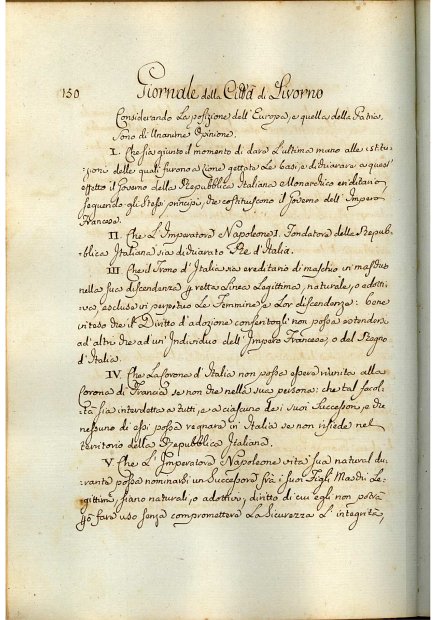 150 Giornale della Città di Livorno
Considerando La posizione dell'Europa, e quella della Patria,
sono di Unanime Opinione.
I. Che sia giunto il momento di dare L'ultima mano alle istitu-
zioni delle quali furono a cione gettate Le basi, e dichiarare a quest'
effetto il Governo della Repubblica Italiana Monarchico ereditario
seguendo gli Stessi principj, che costituiscono il Governo dell'Impero
Francese.
II. Che L'Imperatore Napoleone I. Fondatore della Repub-
blica Italiana sia dichiarato Re d'Italia.
III. Che il Trono d'Italia sia ereditario di maschio in maschio
nella sua discendenza retta Linea Legittima, naturale, o adotti-
va, esclusa in perpetuo Le Femmine e Lor discendenze: bene
inteso che il Diritto d'adozione consentogli non possa estendersi
ad'altri che ad un'Individuo dell'Impero Francese, o del Regno
d'Italia.
IV. Che La Corona d'Italia non possa essere riunita alla
Corona di Francia se non che nella sua persona: che tal facol-
tà sia interdetta a tutti, e a ciascuno dei suoi Successori, e che
nessuno di essi possa regnare in Italia se non risiede nel
territorio della Repubblica Italiana.
V. Che L'Imperatore Napoleone vita sua natural du-
rante possa nominarsi un Successore frà i suoi Figli Maschi Le-
gittimi, siano naturali, o adottivi, diritto di cui egli non potrà
fare uso senza compromettere La Sicurezza L'integrità,